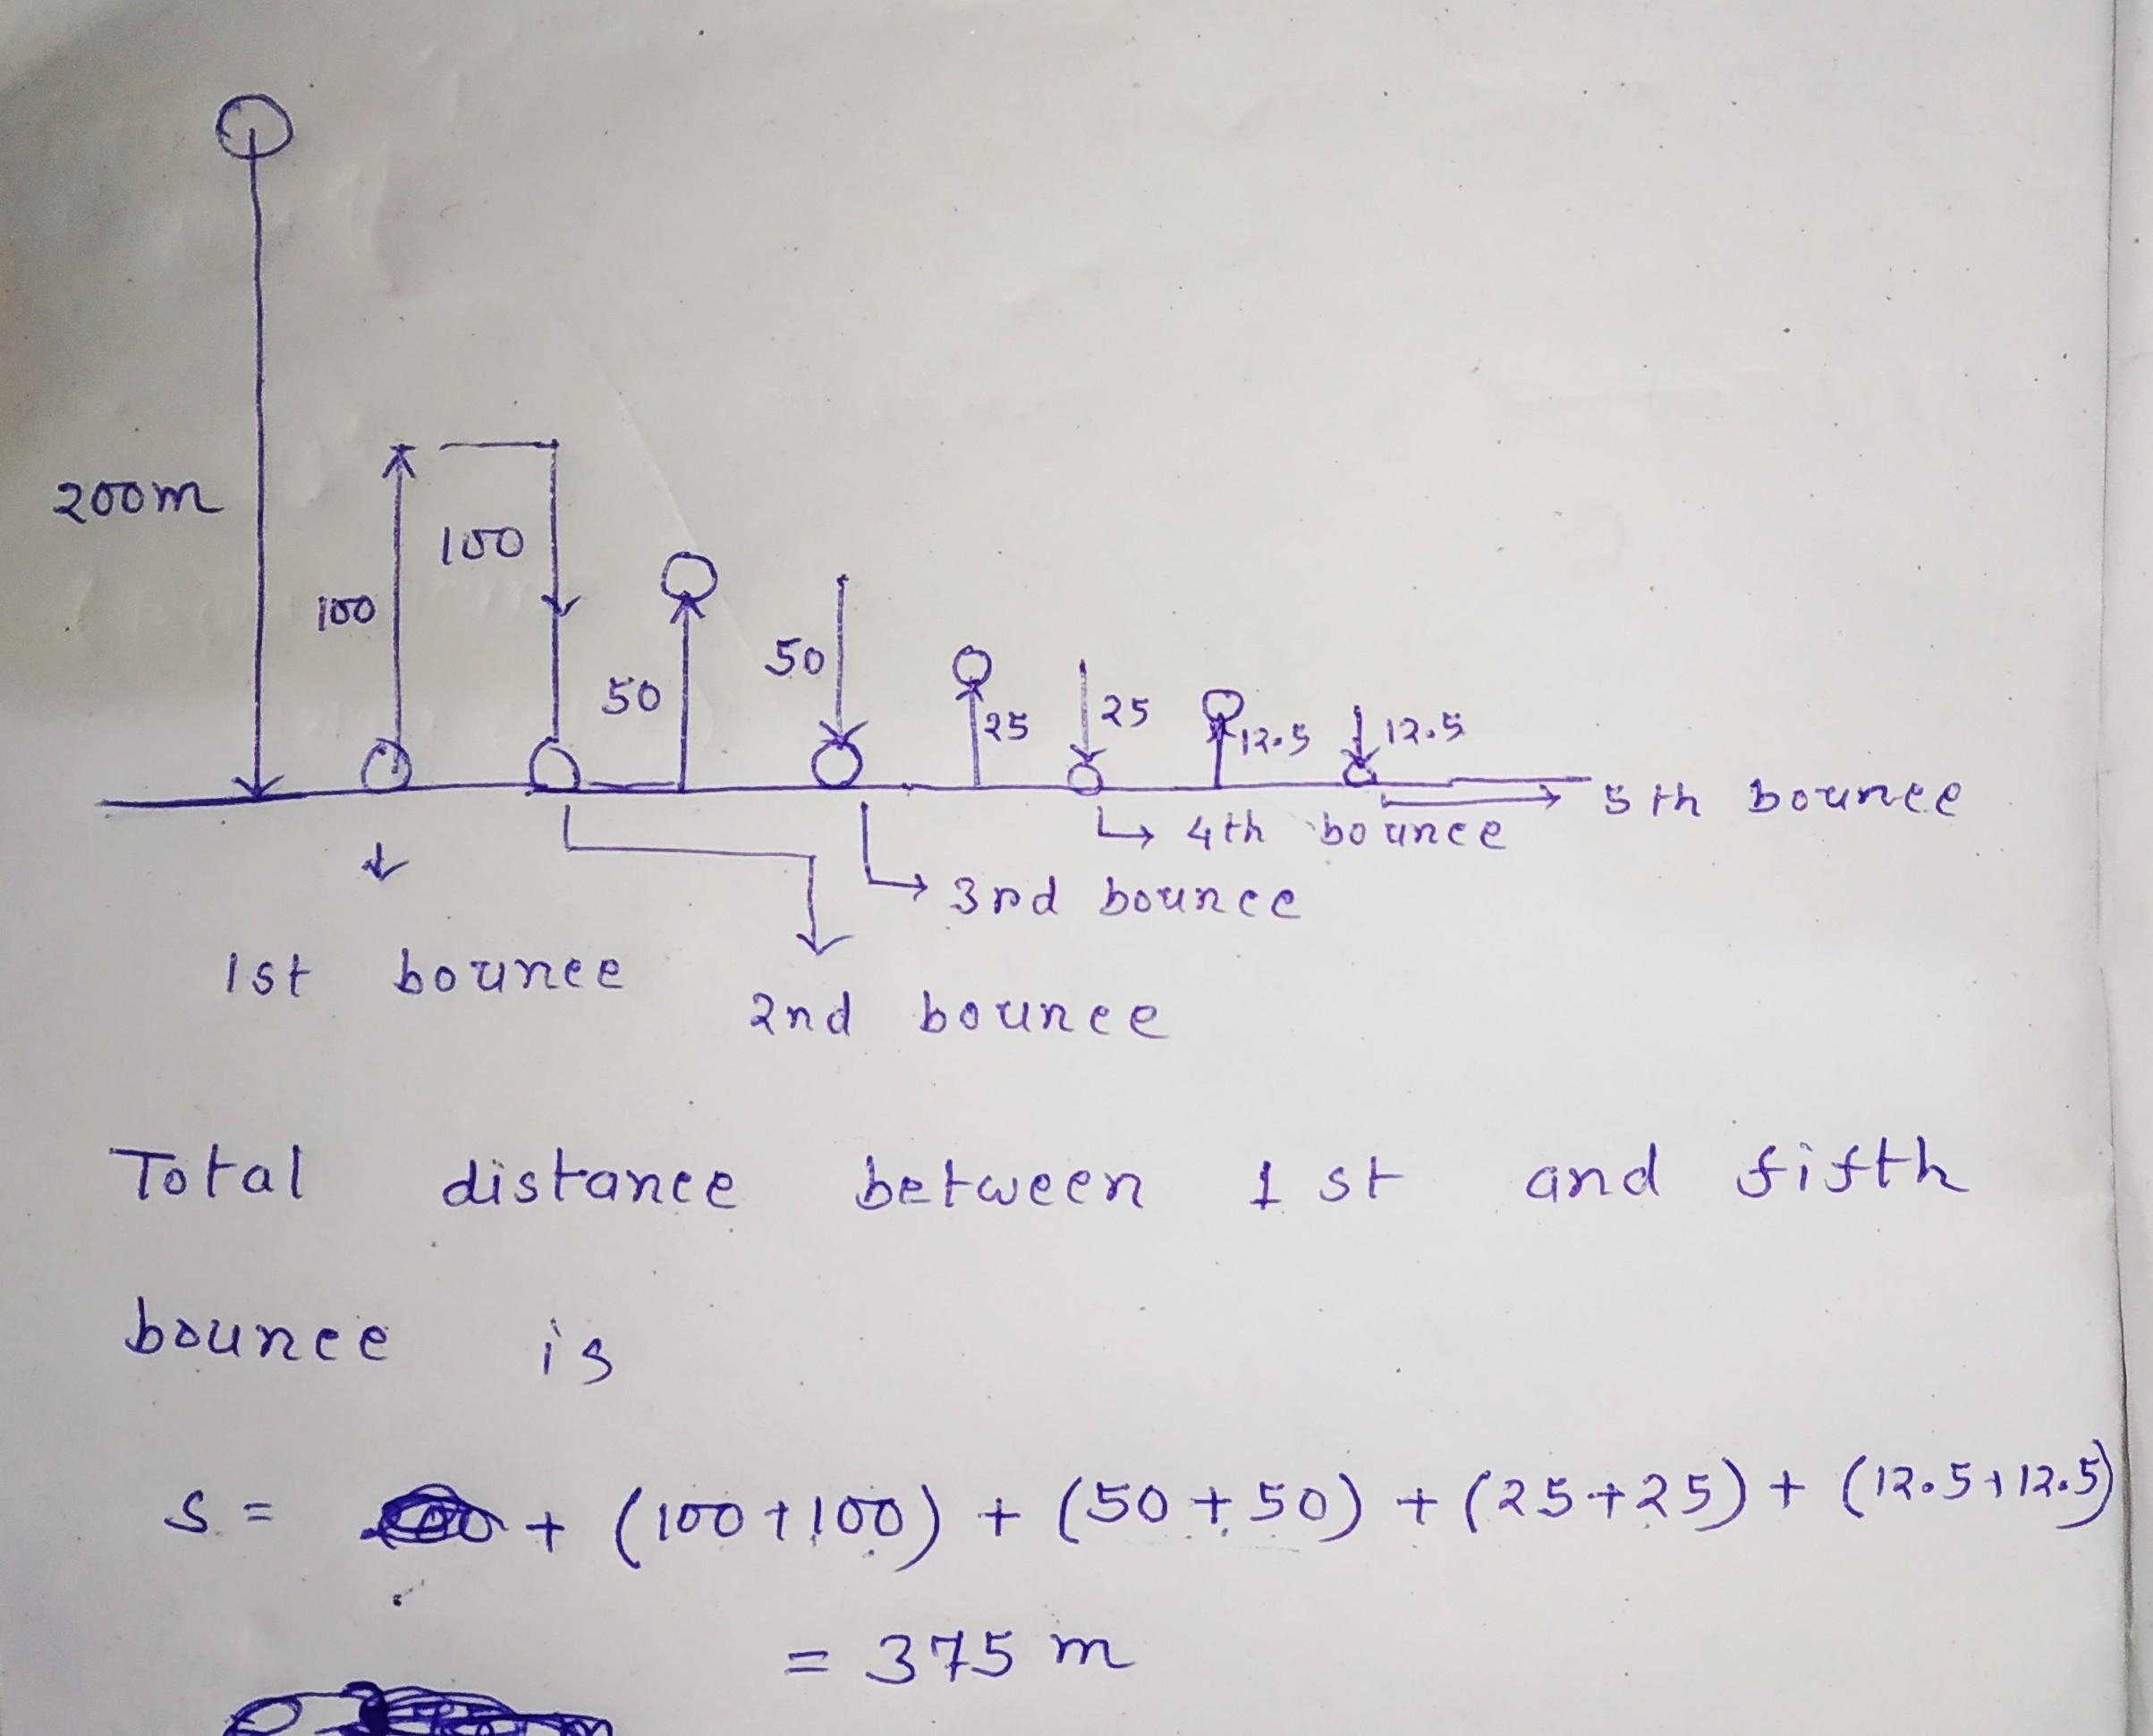 200m
100
100
50
50
25
25
12.5
12.5
5th bounce
4th bounce
3rd bounce
1st bounce
2nd bounce
Total distance between 1st and fifth
bounce is
S = + (100+100) + (50+50) + (25+25) + (12.5+12.5)
= 375 m